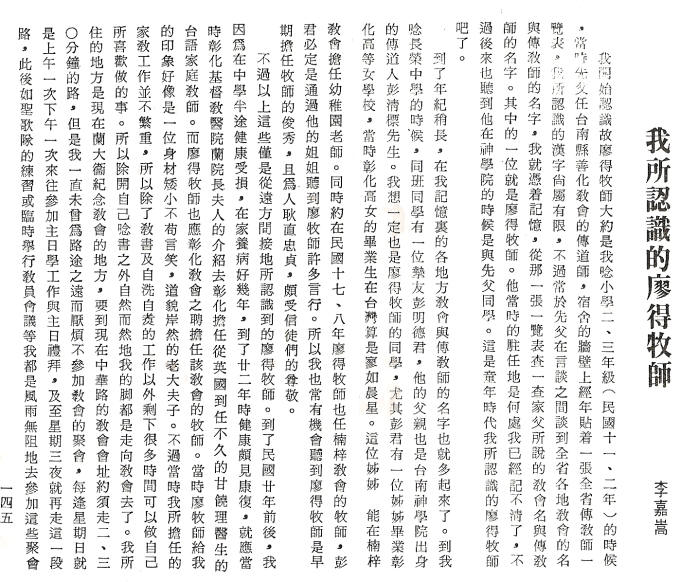 我所認識的廖得牧師
李嘉嵩
我開始認識故廖得牧師大約是我唸小學二、三年級（民國十一、二年）的時候
，當時先父任台南縣善化教會的傳道師，宿舍的牆壁上經年貼着一張全省傳教師一
覽表。我所認識的漢字尚屬有限，不過常於先父在言談之間談到全省各地教會的名
與傳教師的名字，我就憑着記憶，從那一張一覽表查一查家父所說的教會名與傳教
師的名字。其中的一位就是廖得牧師。他當時的駐任地是何處我已經記不清了，不
過後來也聽到他在神學院的時候是與先父同學。這是童年時代我所認識的廖得牧師
吧了。
到了年紀稍長，在我記憶裏的各地方教會與傳教師的名字也就多起來了。到我
唸長榮中學的時候，同班同學有一位摯友彭明德君，他的父親也是台南神學院出身
的傳道人彭清標先生。我想一定也是廖得牧師的同學，尤其彭君有一位姊姊畢業彰
化高等女學校，當時彰化高女的畢業生在台灣算是寥如晨星。這位姊姊　能在楠梓
教會擔任幼稚園老師。同時約在民國十七、八年廖得牧師也任楠梓教會的牧師，彭
君必定是通過他的姐姐聽到廖牧師許多言行。所以我也常有機會聽到廖得牧師是早
期擔任牧師的俊秀，且爲人耿直忠貞，頗受信徒們的尊敬。
不過以上這些僅是從遠方間接地所認識到的廖得牧師。到了民國廿年前後，我
因爲在中學半途健康受損，在家養病好幾年，到了廿二年時健康頗見康復，就應當
時彰化基督教醫院蘭院長夫人的介紹去彰化擔任從英國到任不久的甘饒理醫生的
台語家庭教師。而廖得牧師也應彰化教會之聘擔任該教會的牧師。當時廖牧師給我
的印象好像是一位身材矮小不苟言笑，道貌岸然的老大夫子。不過當時我所擔任的
家教工作並不繁重，所以除了教書及自洗自煑的工作以外剩下很多時間可以做自己
所喜歡做的事。所以除開自己唸書之外自然而然地我的脚都是走向教會去了。我所
住的地方是現在蘭大衞紀念教會的地方，要到現在中華路的教會會址約須走二、三
〇分鐘的路，但是我一直未曾爲路途之遠而厭煩不參加教會的聚會，每逢星期日就
是上午一次下午一次來往參加主日學工作與主日禮拜，及至星期三夜就再走這一段
路，此後如聖歌隊的練習或臨時舉行教員會議等我都是風雨無阻地去參加這些聚會
一四五